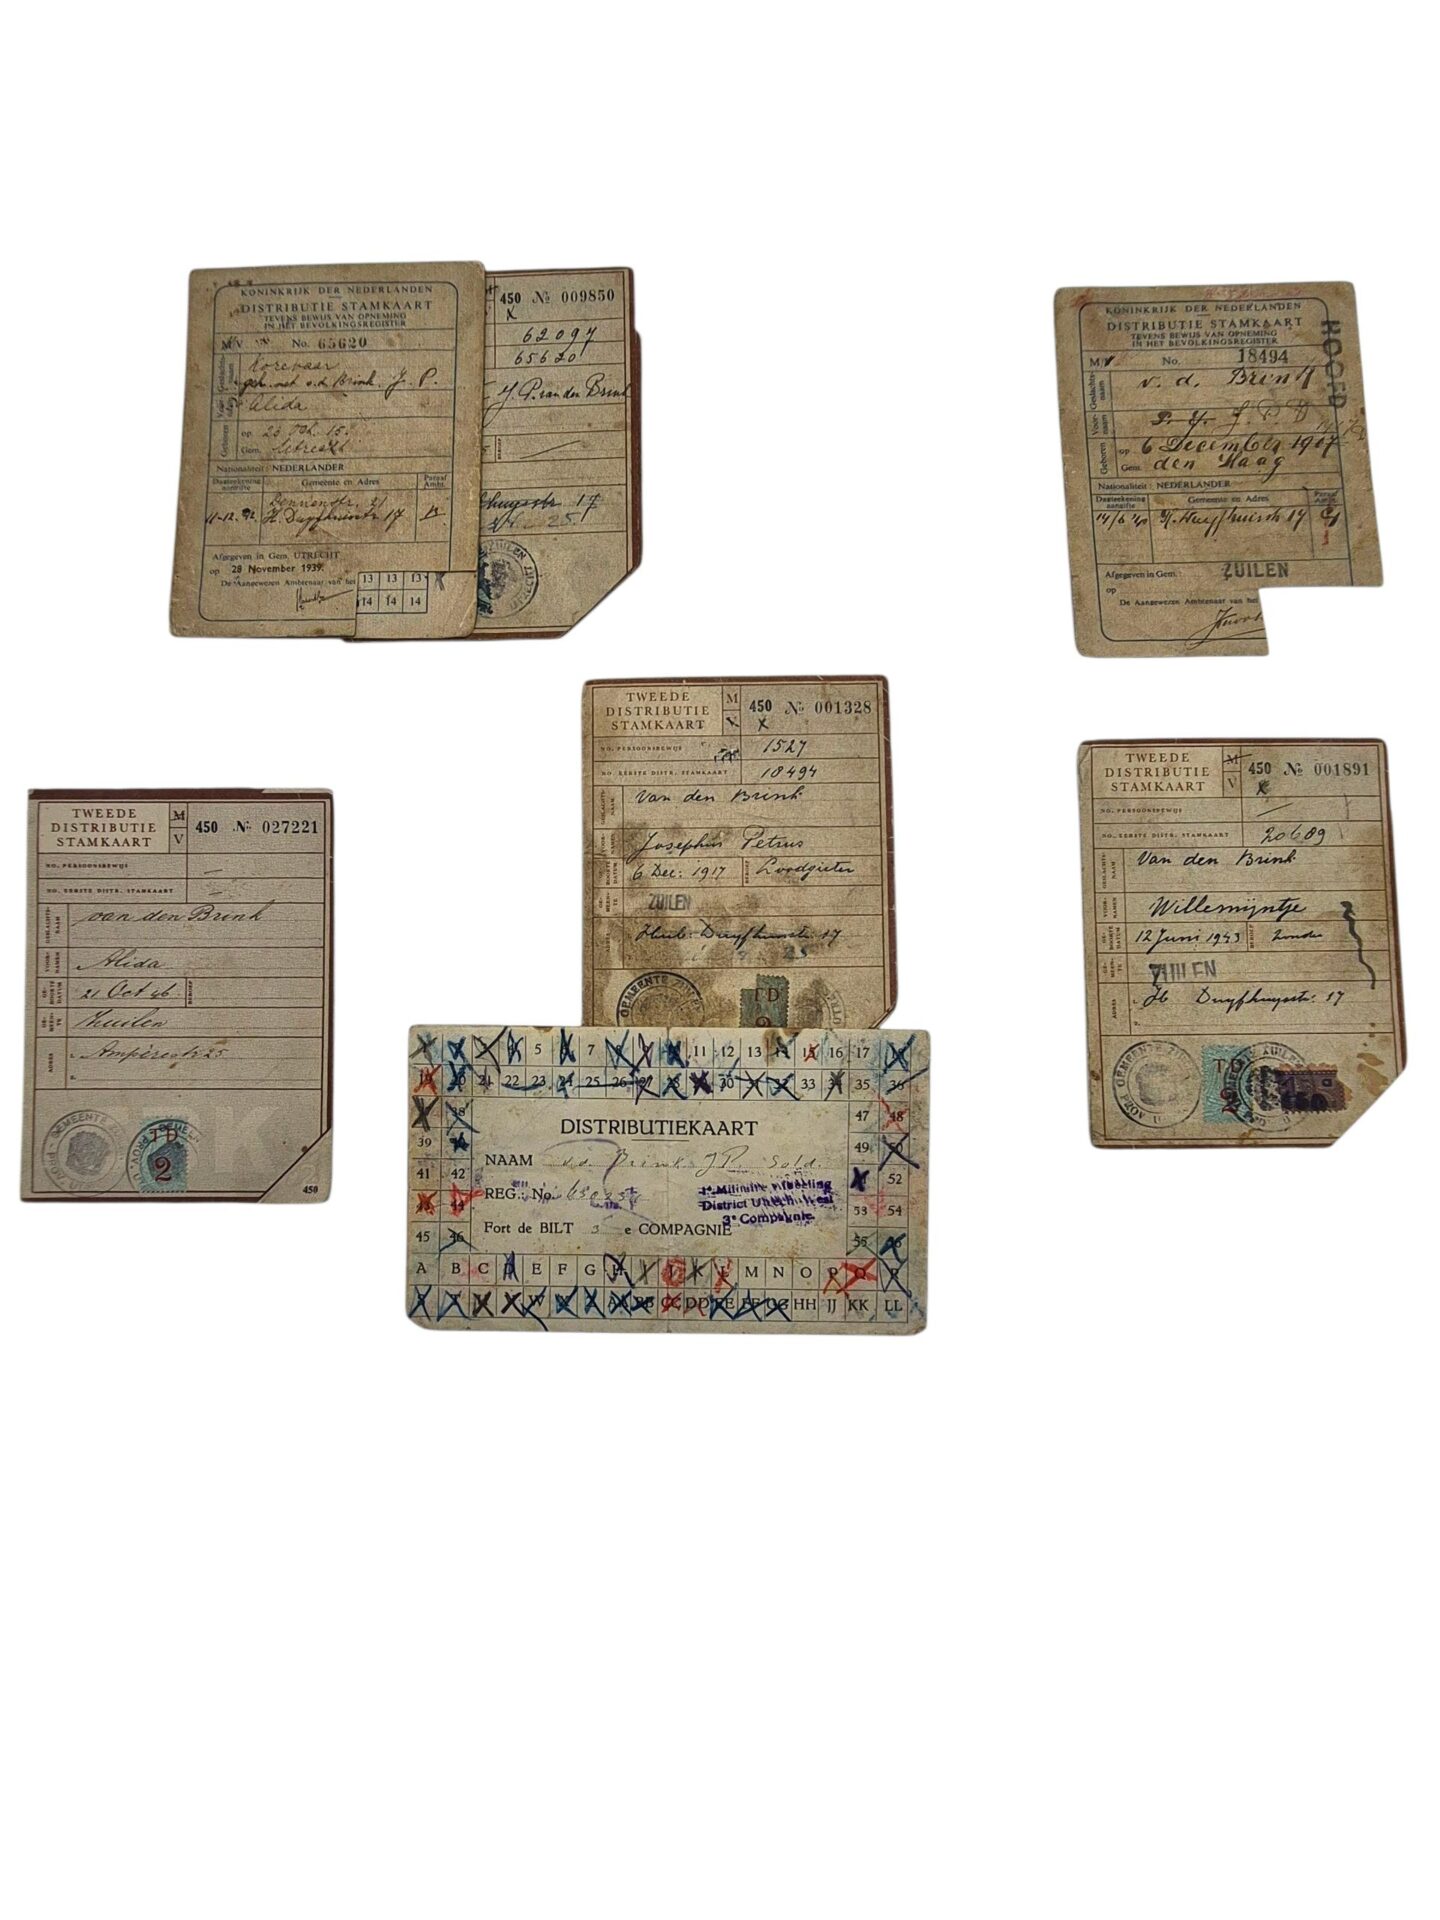 KONINKRIJK DER NEDERLANDEN
DISTRIBUTIE STAMKAART
TEVENS BEWIJS VAN OPNEMING
IN HET BEVOLKINGSREGISTER
M/V No. 65620
Geslachtsnaam Korevaar
geh. met v.d. Brink. J. P.
Voornaam Alida
Geboren op 23 15.
Gem. Utrecht
Nationaliteit: NEDERLANDER
Dagteekening aangifte Gemeente en Adres Paraaf Ambt.
Dennenstr. 21
11-12.42 H. Duyfhuisstr 17
Afgegeven in Gem. UTRECHT
op 28 November 1939.
De Aangewezen Ambtenaar van het
13 13 13
14 14 14
450 No 009850
X
62097
65620
J. P. van den Brink
17
25
ZUILEN
KONINKRIJK DER NEDERLANDEN
DISTRIBUTIE STAMKAART
TEVENS BEWIJS VAN OPNEMING
IN HET BEVOLKINGSREGISTER
HOOFD
M/V No. 18494
Geslachtsnaam v. d. Brink
Voornaam
Geboren op 6 December 1917
Gem. den Haag
Nationaliteit: NEDERLANDER
Dagteekening aangifte Gemeente en Adres Paraaf Ambt.
14/6 '40 17
Afgegeven in Gem. ZUILEN
op
De Aangewezen Ambtenaar van het
TWEEDE
DISTRIBUTIE
STAMKAART
M
V
450 No 001328
X
NO. PERSOONSBEWIJS 1527
NO. EERSTE DISTR. STAMKAART 18494
GESLACHTSNAAM Van den Brink
VOORNAMEN Josephus Petrus
GEBOORTEDATUM 6 Dec. 1917 BEROEP Loodgieter
GEMEENTE ZUILEN
Hub. Duyfhuisstr. 17
25
GEMEENTE ZUILEN
TD
2
TWEEDE
DISTRIBUTIE
STAMKAART
M
V
450 No 001891
X
NO. PERSOONSBEWIJS —
NO. EERSTE DISTR. STAMKAART 20689
GESLACHTSNAAM Van den Brink
VOORNAMEN Willemijntje
GEBOORTEDATUM 12 Juni 1943 BEROEP Zonder
GEMEENTE ZUILEN
ADRES 1. Hb Duyfhuysstr. 17
2.
GEMEENTE ZUILEN
PROV. U
TD
2
TWEEDE
DISTRIBUTIE
STAMKAART
M
V
450 No 027221
NO. PERSOONSBEWIJS —
NO. EERSTE DISTR. STAMKAART —
GESLACHTSNAAM van den Brink
VOORNAMEN Alida
GEBOORTEDATUM 21 Oct 46 BEROEP
GEMEENTE Zuilen
ADRES 1. Ampèrestr 25
2.
GEMEENTE
PROV. U
TD
2
450
4 5 6 7 8 9 11 12 13 14 15 16 17
19 20 21 22 23 24 25 26 27 28 30 31 32 33 34 35 36
38 47 48
39 49 50
41 42 52
43 44 53 54
45 46 55 56
DISTRIBUTIEKAART
NAAM v.d. Brink J.P. Sold.
REG.: No.
1e Militaire Afdeeling
District Utrecht West
3e Compagnie.
Fort de BILT 3 e COMPAGNIE
A B C D E F G H I J K L M N O P Q R
S T W AA BB CC DD EE FF GG HH JJ KK LL